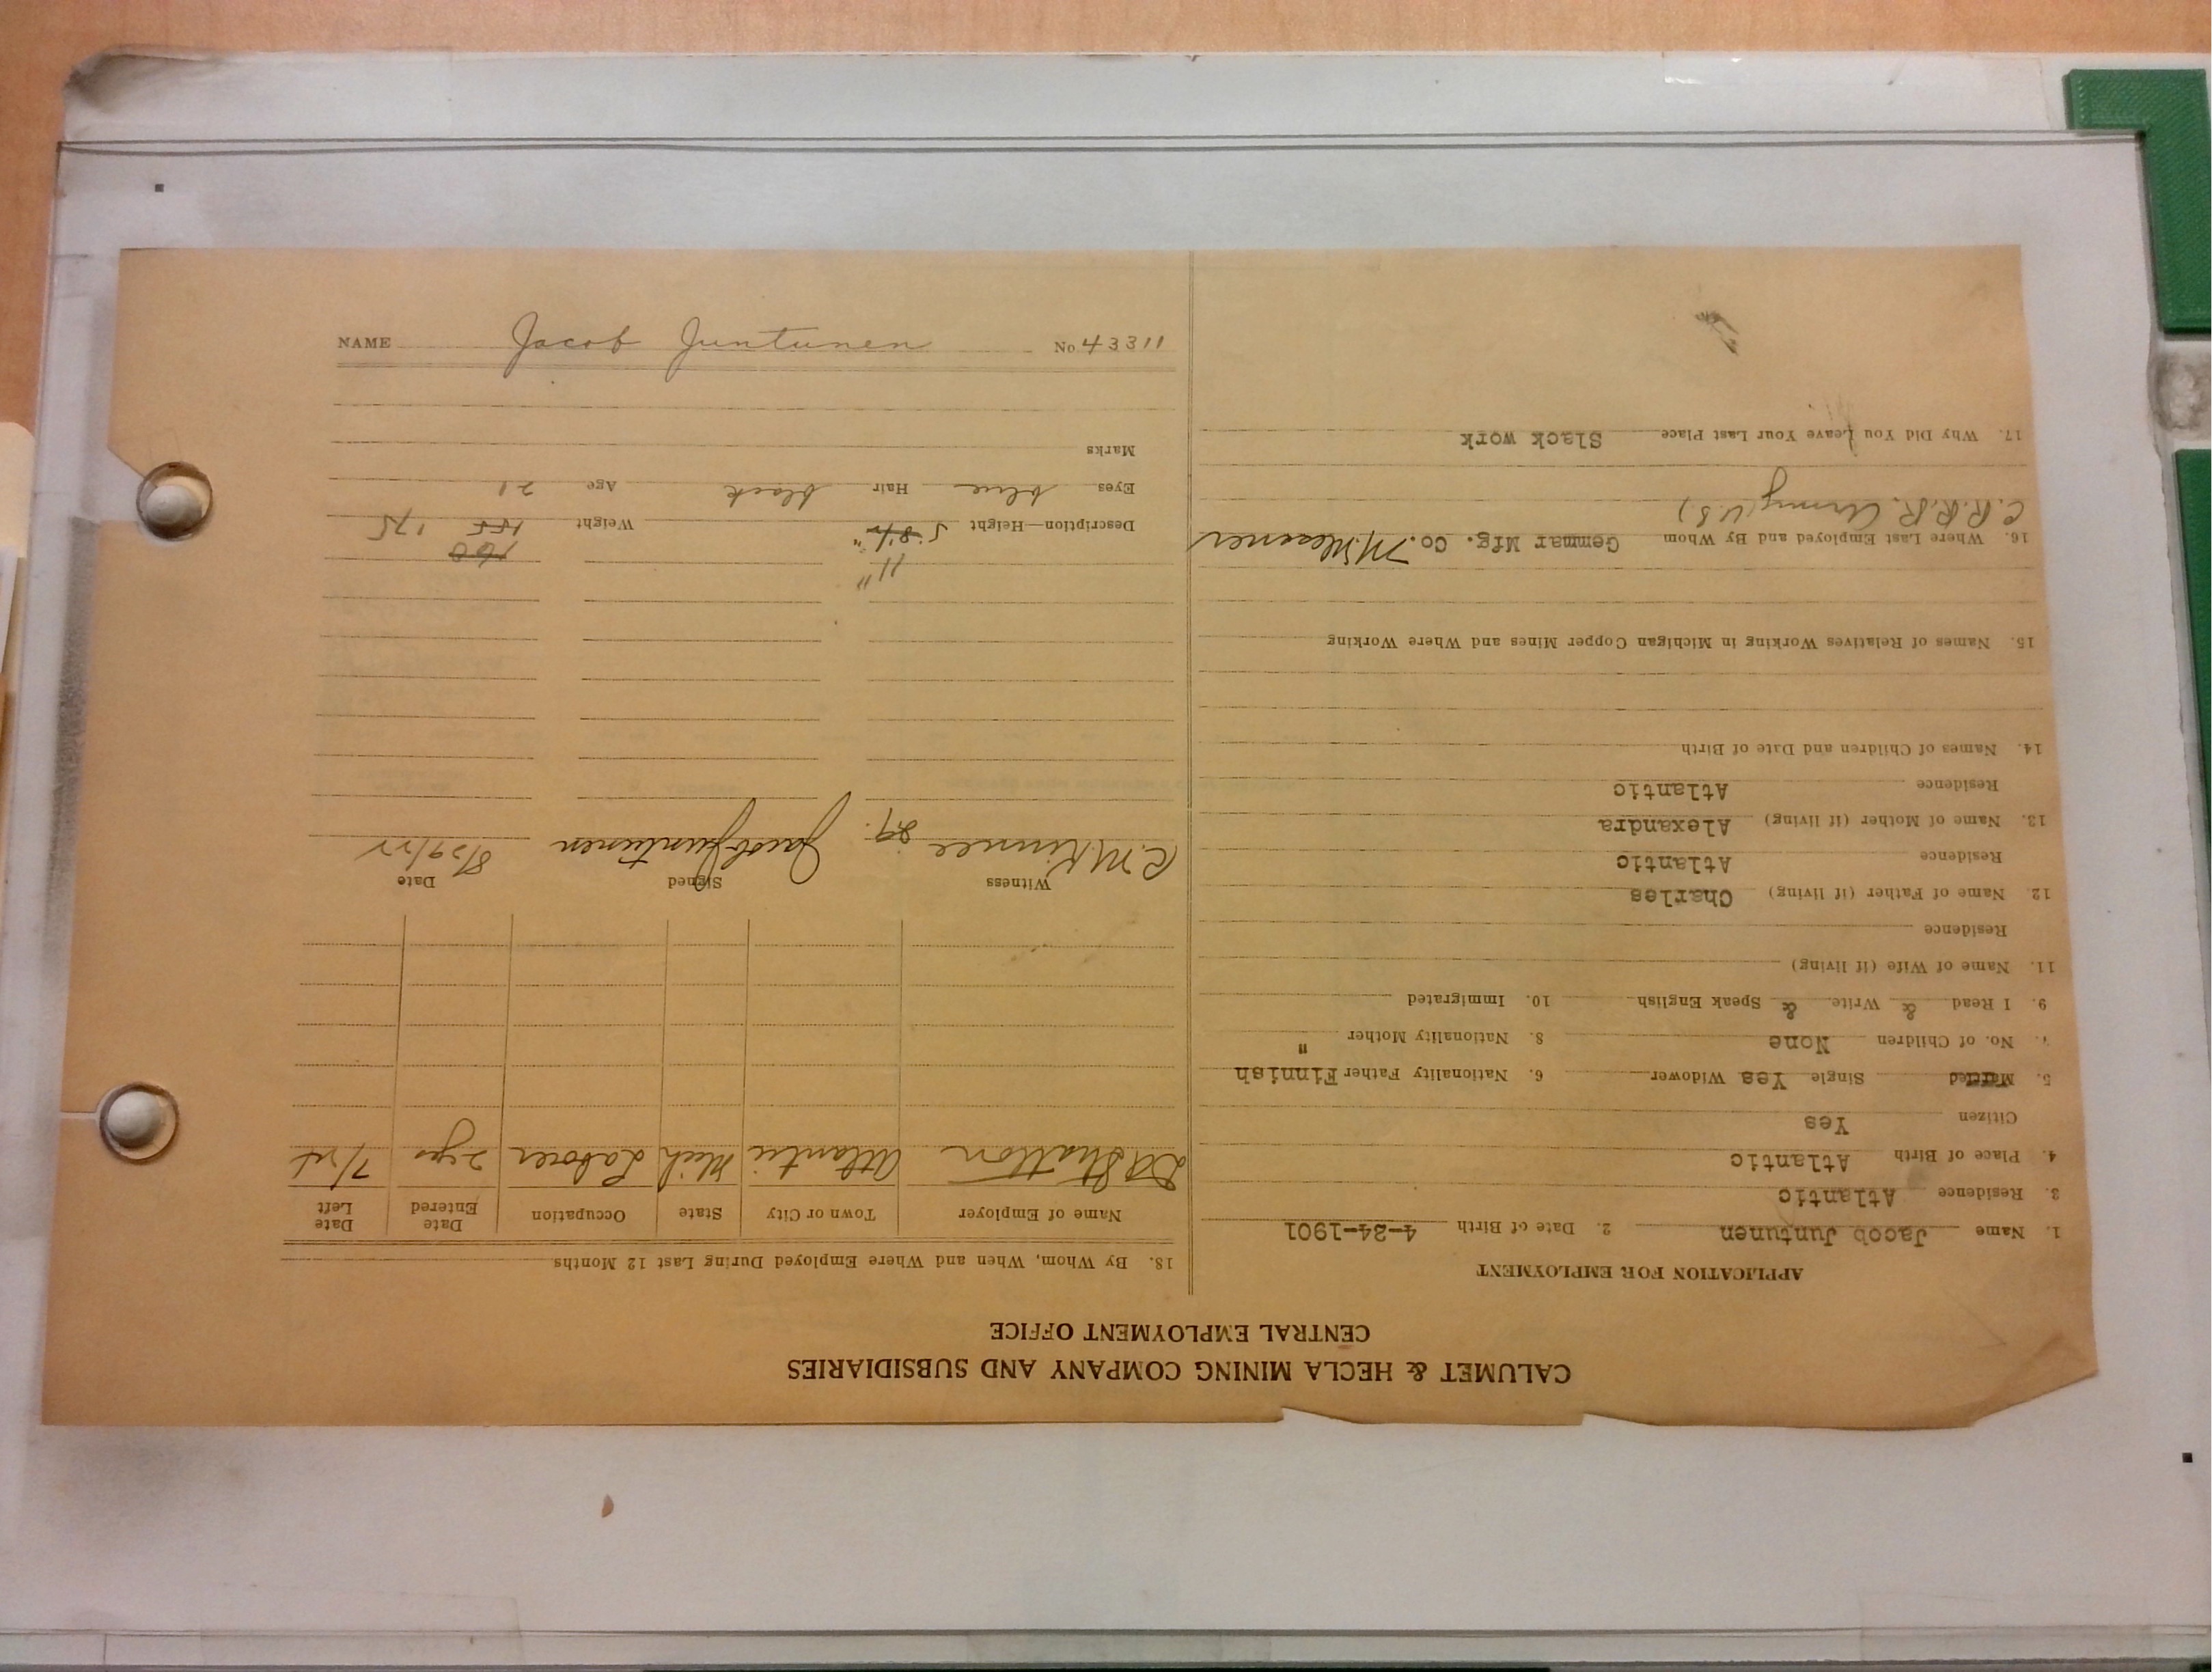 CALUMET & HECLA MINING COMPANY AND SUBSIDIARIES
CENTRAL EMPLOYMENT OFFICE
APPLICATION FOR EMPLOYMENT
1. Name Jacob Juntunen 2. Date of Birth 4-24-1901
3. Residence Atlantic
4. Place of Birth Atlantic
Citizen Yes
5. Married Single Yes Widower 6. Nationality Father Finnish
7. No. of Children None 8. Nationality Mother "
9. I Read & Write & Speak English 10. Immigrated
11. Name of Wife (if living)
Residence
12. Name of Father (if living) Charles
Residence Atlantic
13. Name of Mother (if living) Alexandra
Residence Atlantic
14. Names of Children and Date of Birth
15. Names of Relatives Working in Michigan Copper Mines and Where Working
16. Where Last Employed and By Whom Gemmar Mfg. Co.
C.R.R.R. Army (U.S)
17. Why Did You Leave Your Last Place Slack work
18. By Whom, When and Where Employed During Last 12 Months
Name of Employer Town or City State Occupation Date Entered Date Left
Stratton Atlantic Mich Laborer 2 yrs
Witness Signed Date
Jacob Juntunen 8/29/22
29.
11"
160
Description—Height 5' 8½" Weight 155 175
Eyes blue Hair black Age 21
Marks
NAME Jacob Juntunen No 43311